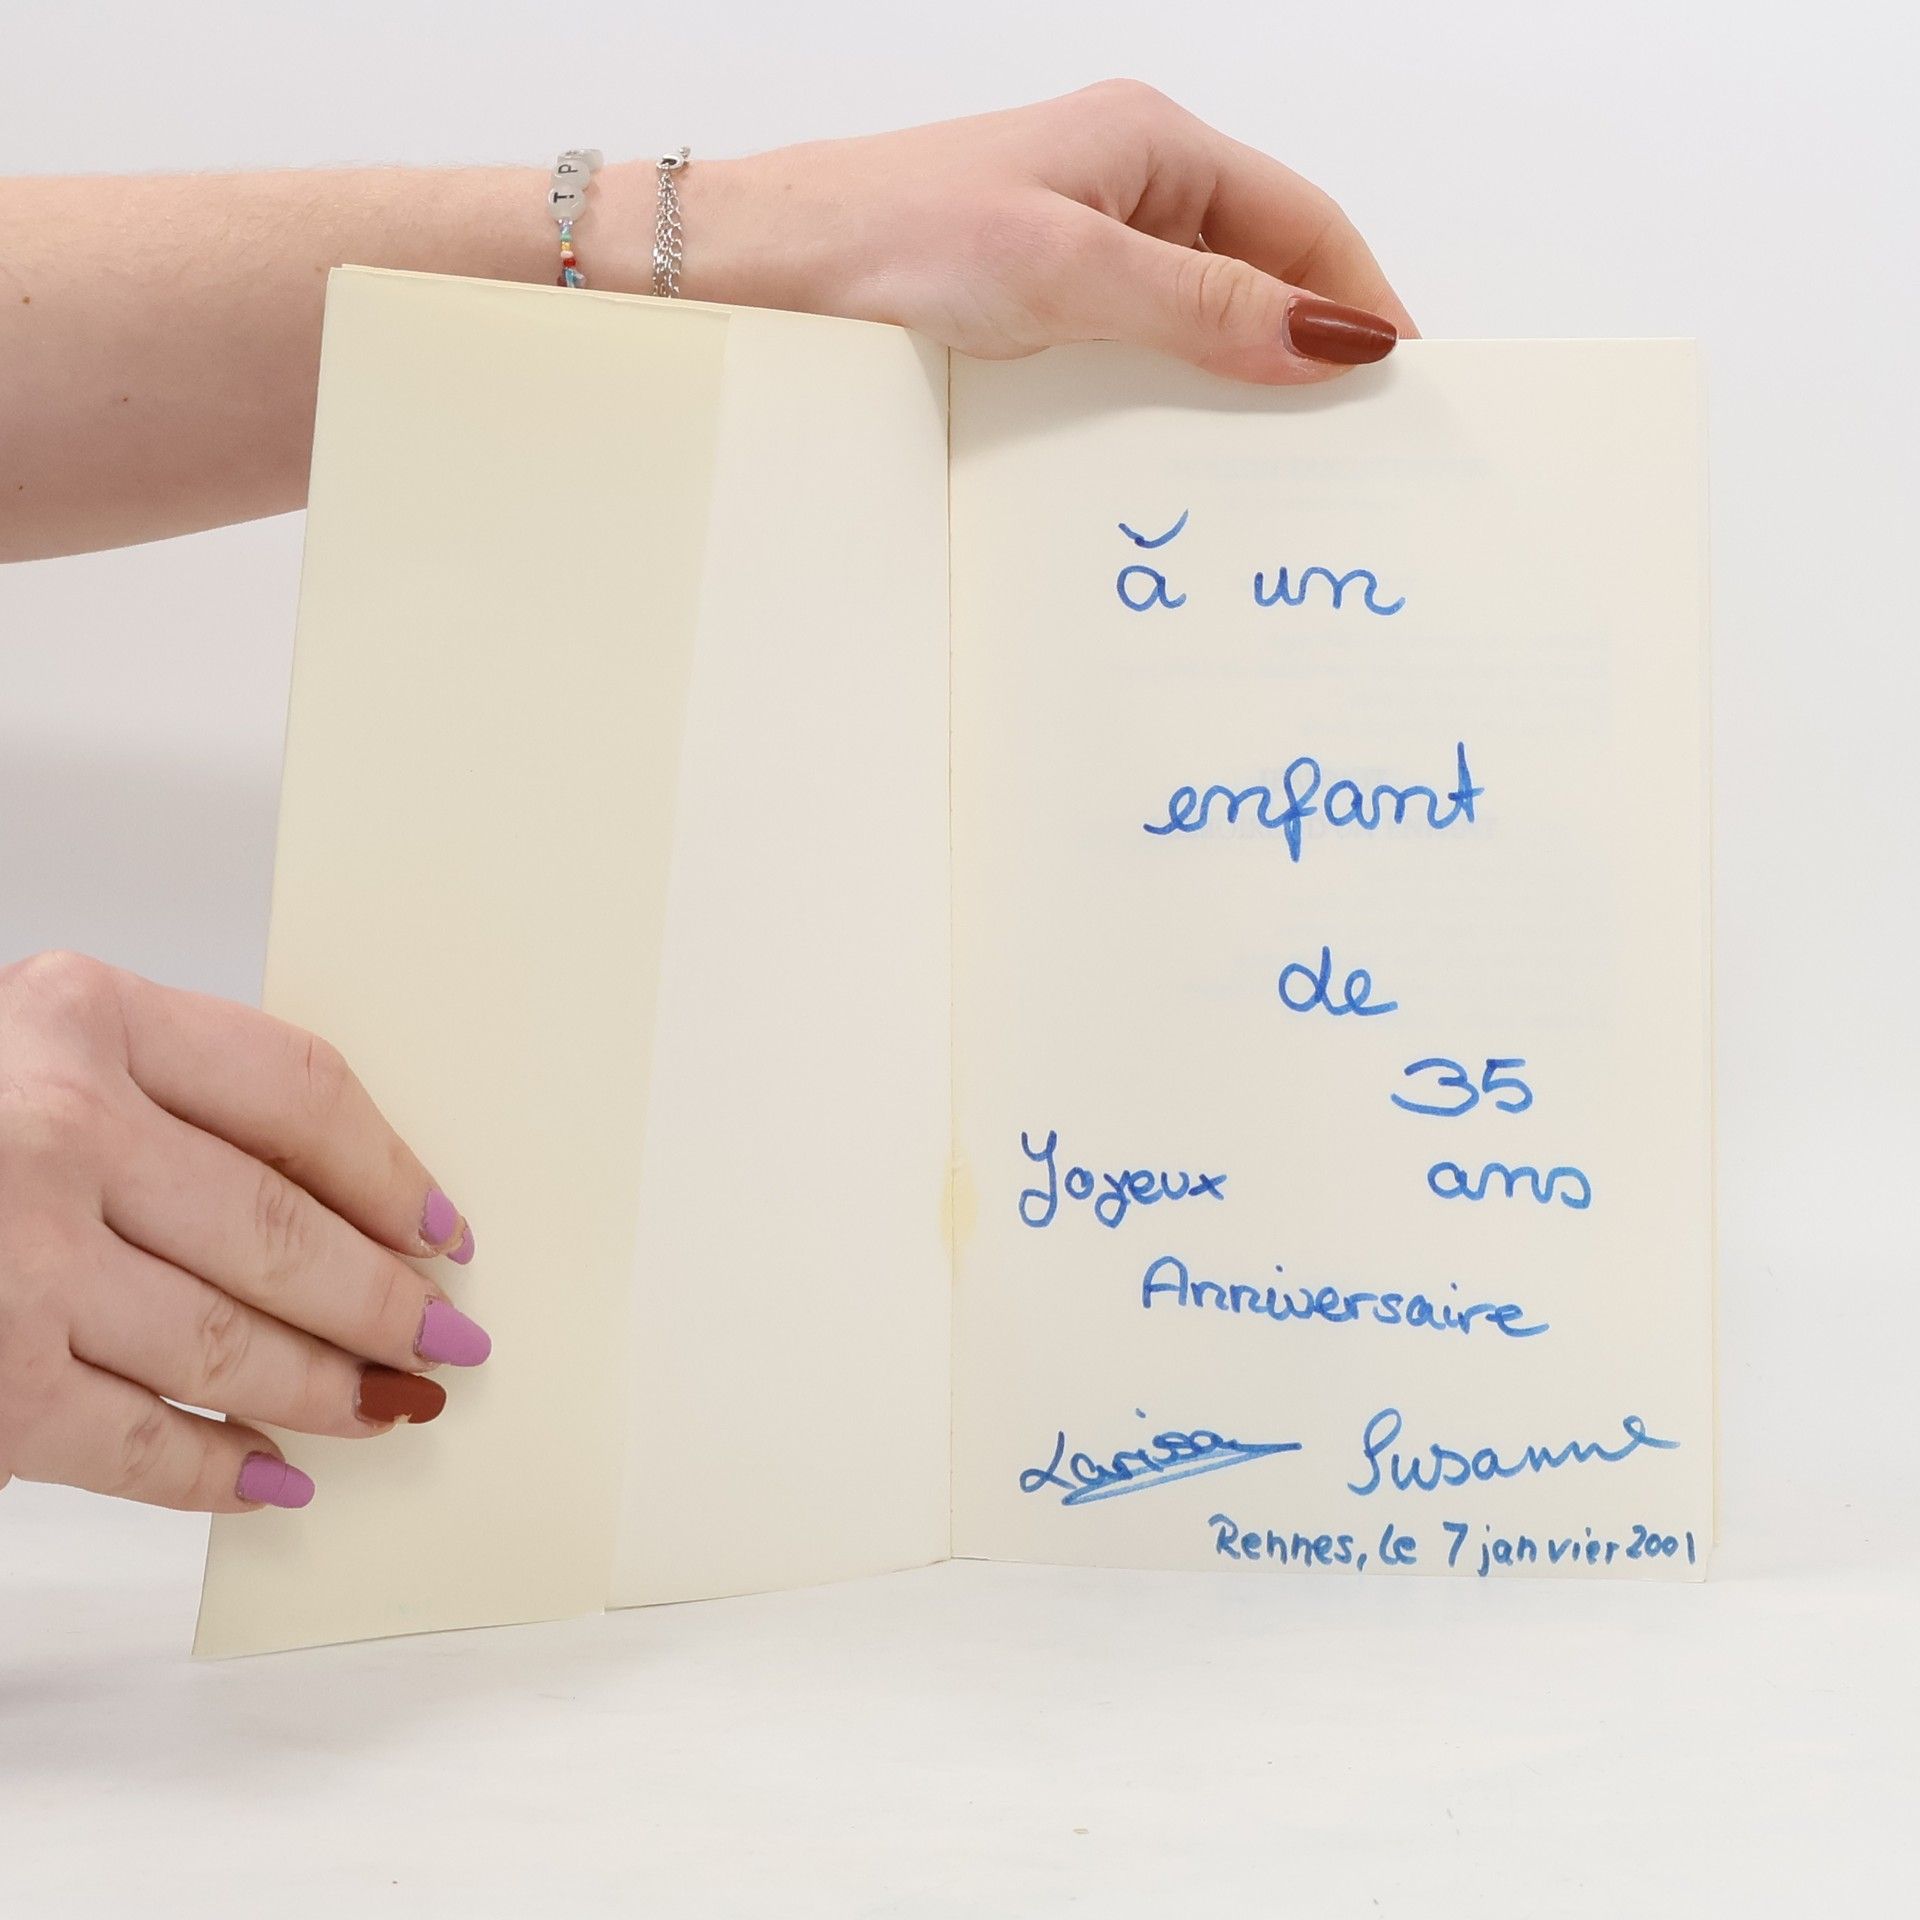 TP
à un
enfant
de
35
Joyeux ans
Anniversaire
Larissa Susanne
Rennes, le 7 janvier 2001